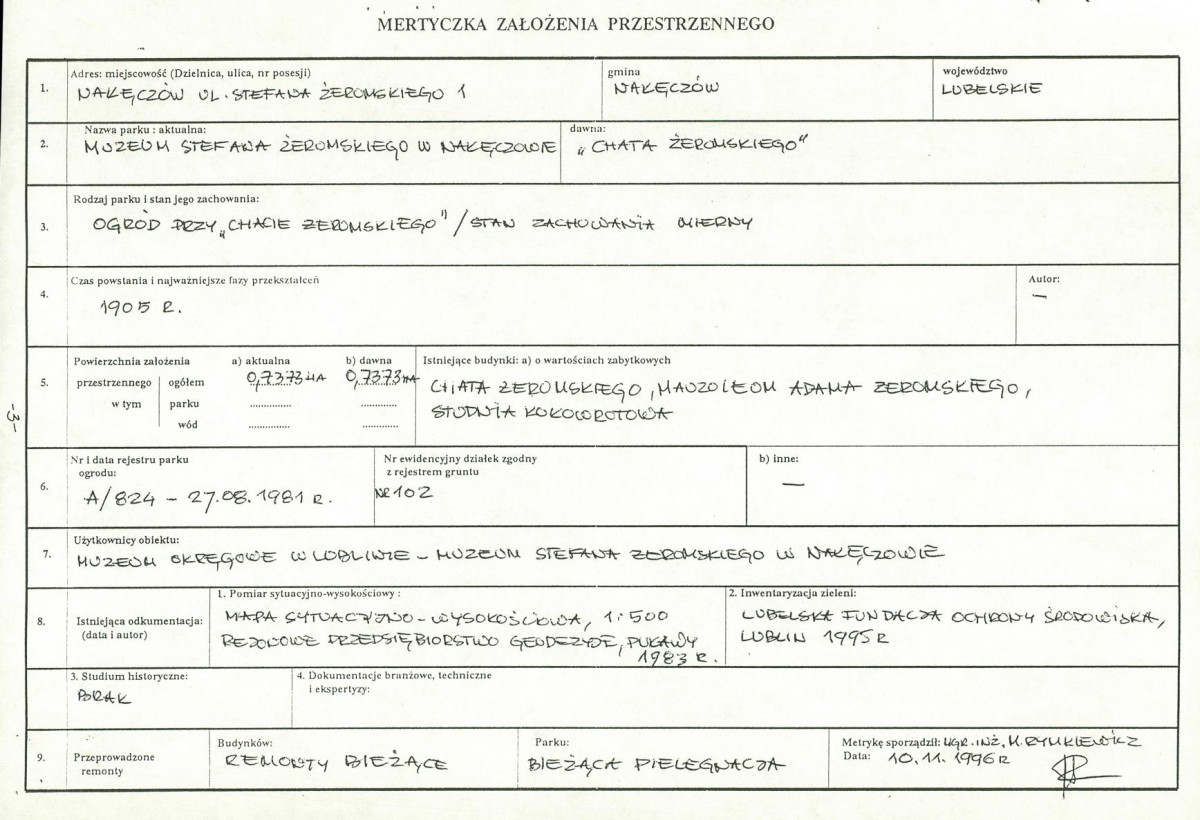 MERTYCZKA ZAŁOŻENIA PRZESTRZENNEGO
1.
Adres: miejscowość (Dzielnica, ulica, nr posesji)
NAŁĘCZÓW UL. STEFANA ŻEROMSKIEGO 1
gmina
NAŁĘCZÓW
województwo
LUBELSKIE
2.
Nazwa parku : aktualna:
MUZEUM STEFANA ŻEROMSKIEGO W NAŁĘCZOWIE
dawna:
„CHATA ŻEROMSKIEGO"
3.
Rodzaj parku i stan jego zachowania:
OGRÓD PRZY „CHACIE ŻEROMSKIEGO" / STAN ZACHOWANIA MIERNY
4.
Czas powstania i najważniejsze fazy przekształceń
1905 R.
Autor:
—
5.
Powierzchnia założenia
przestrzennego
w tym
ogółem
parku
wód
a) aktualna
0,7373 HA
..............
..............
b) dawna
0,7373 HA
............
............
Istniejące budynki: a) o wartościach zabytkowych
CHATA ŻEROMSKIEGO, MAUZOLEUM ADAMA ŻEROMSKIEGO,
STUDNIA KOŁOWROTOWA
-3-
6.
Nr i data rejestru parku
ogrodu:
A/824 – 27.08.1981 R.
Nr ewidencyjny działek zgodny
z rejestrem gruntu
NR 102
b) inne:
—
7.
Użytkownicy obiektu:
MUZEUM OKRĘGOWE W LUBLINIE – MUZEUM STEFANA ŻEROMSKIEGO W NAŁĘCZOWIE
8.
Istniejąca odkumentacja:
(data i autor)
1. Pomiar sytuacyjno-wysokościowy :
MAPA SYTUACYJNO-WYSOKOŚCIOWA, 1:500
REJONOWE PRZEDSIĘBIORSTWO GEODEZYJNE, PUŁAWY
1983 R.
2. Inwentaryzacja zieleni:
LUBELSKA FUNDACJA OCHRONY ŚRODOWISKA,
LUBLIN 1995 R
3. Studium historyczne:
BRAK
4. Dokumentacje branżowe, techniczne
i ekspertyzy:
9.
Przeprowadzone
remonty
Budynków:
REMONTY BIEŻĄCE
Parku:
BIEŻĄCA PIELĘGNACJA
Metrykę sporządził: MGR. INŻ. M. RYMKIEWICZ
Data: 10.11.1996 R